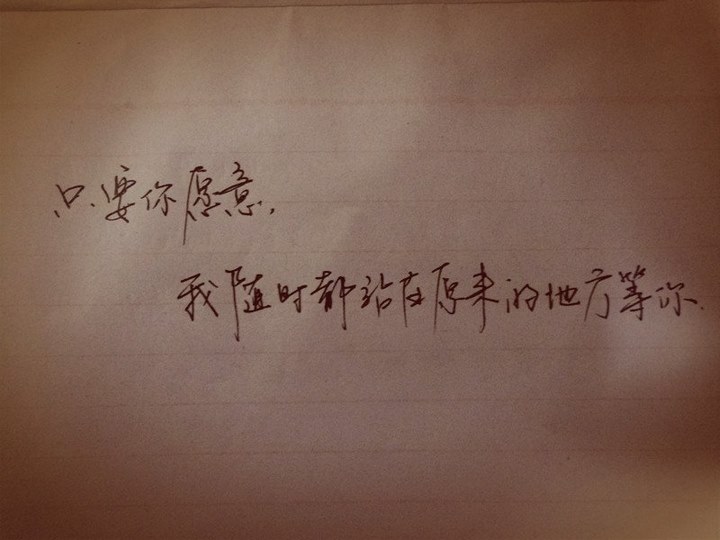 只要你愿意,
我随时都站在原来的地方等你.